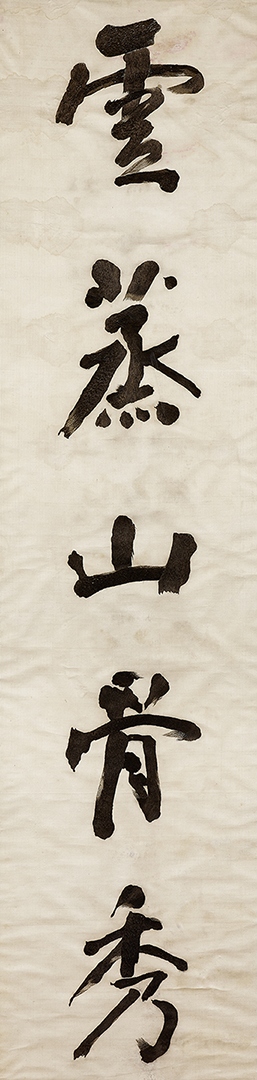 雲蒸山骨秀